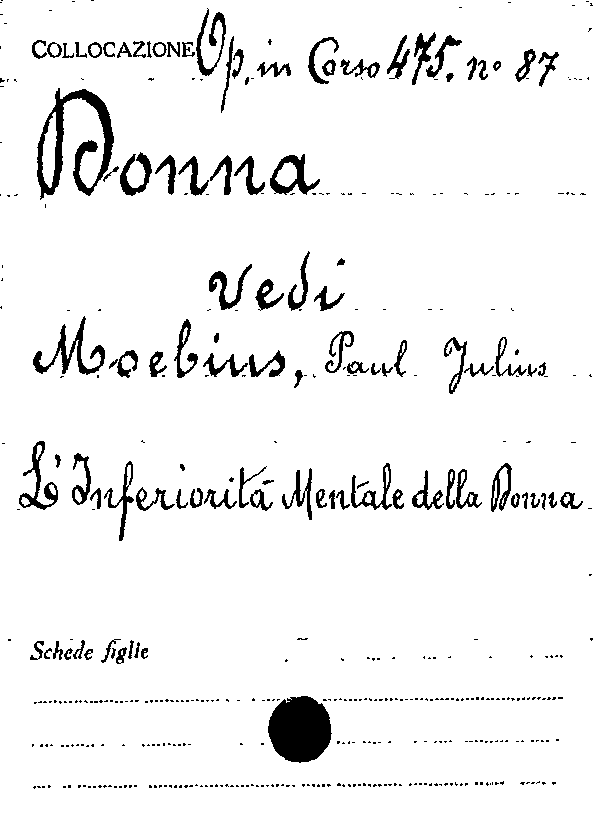 COLLOCAZIONE Op. in Corso 475. nº 87
Donna
Vedi
Moebius, Paul Julius
L'Inferiorità Mentale della Donna
Schede figlie